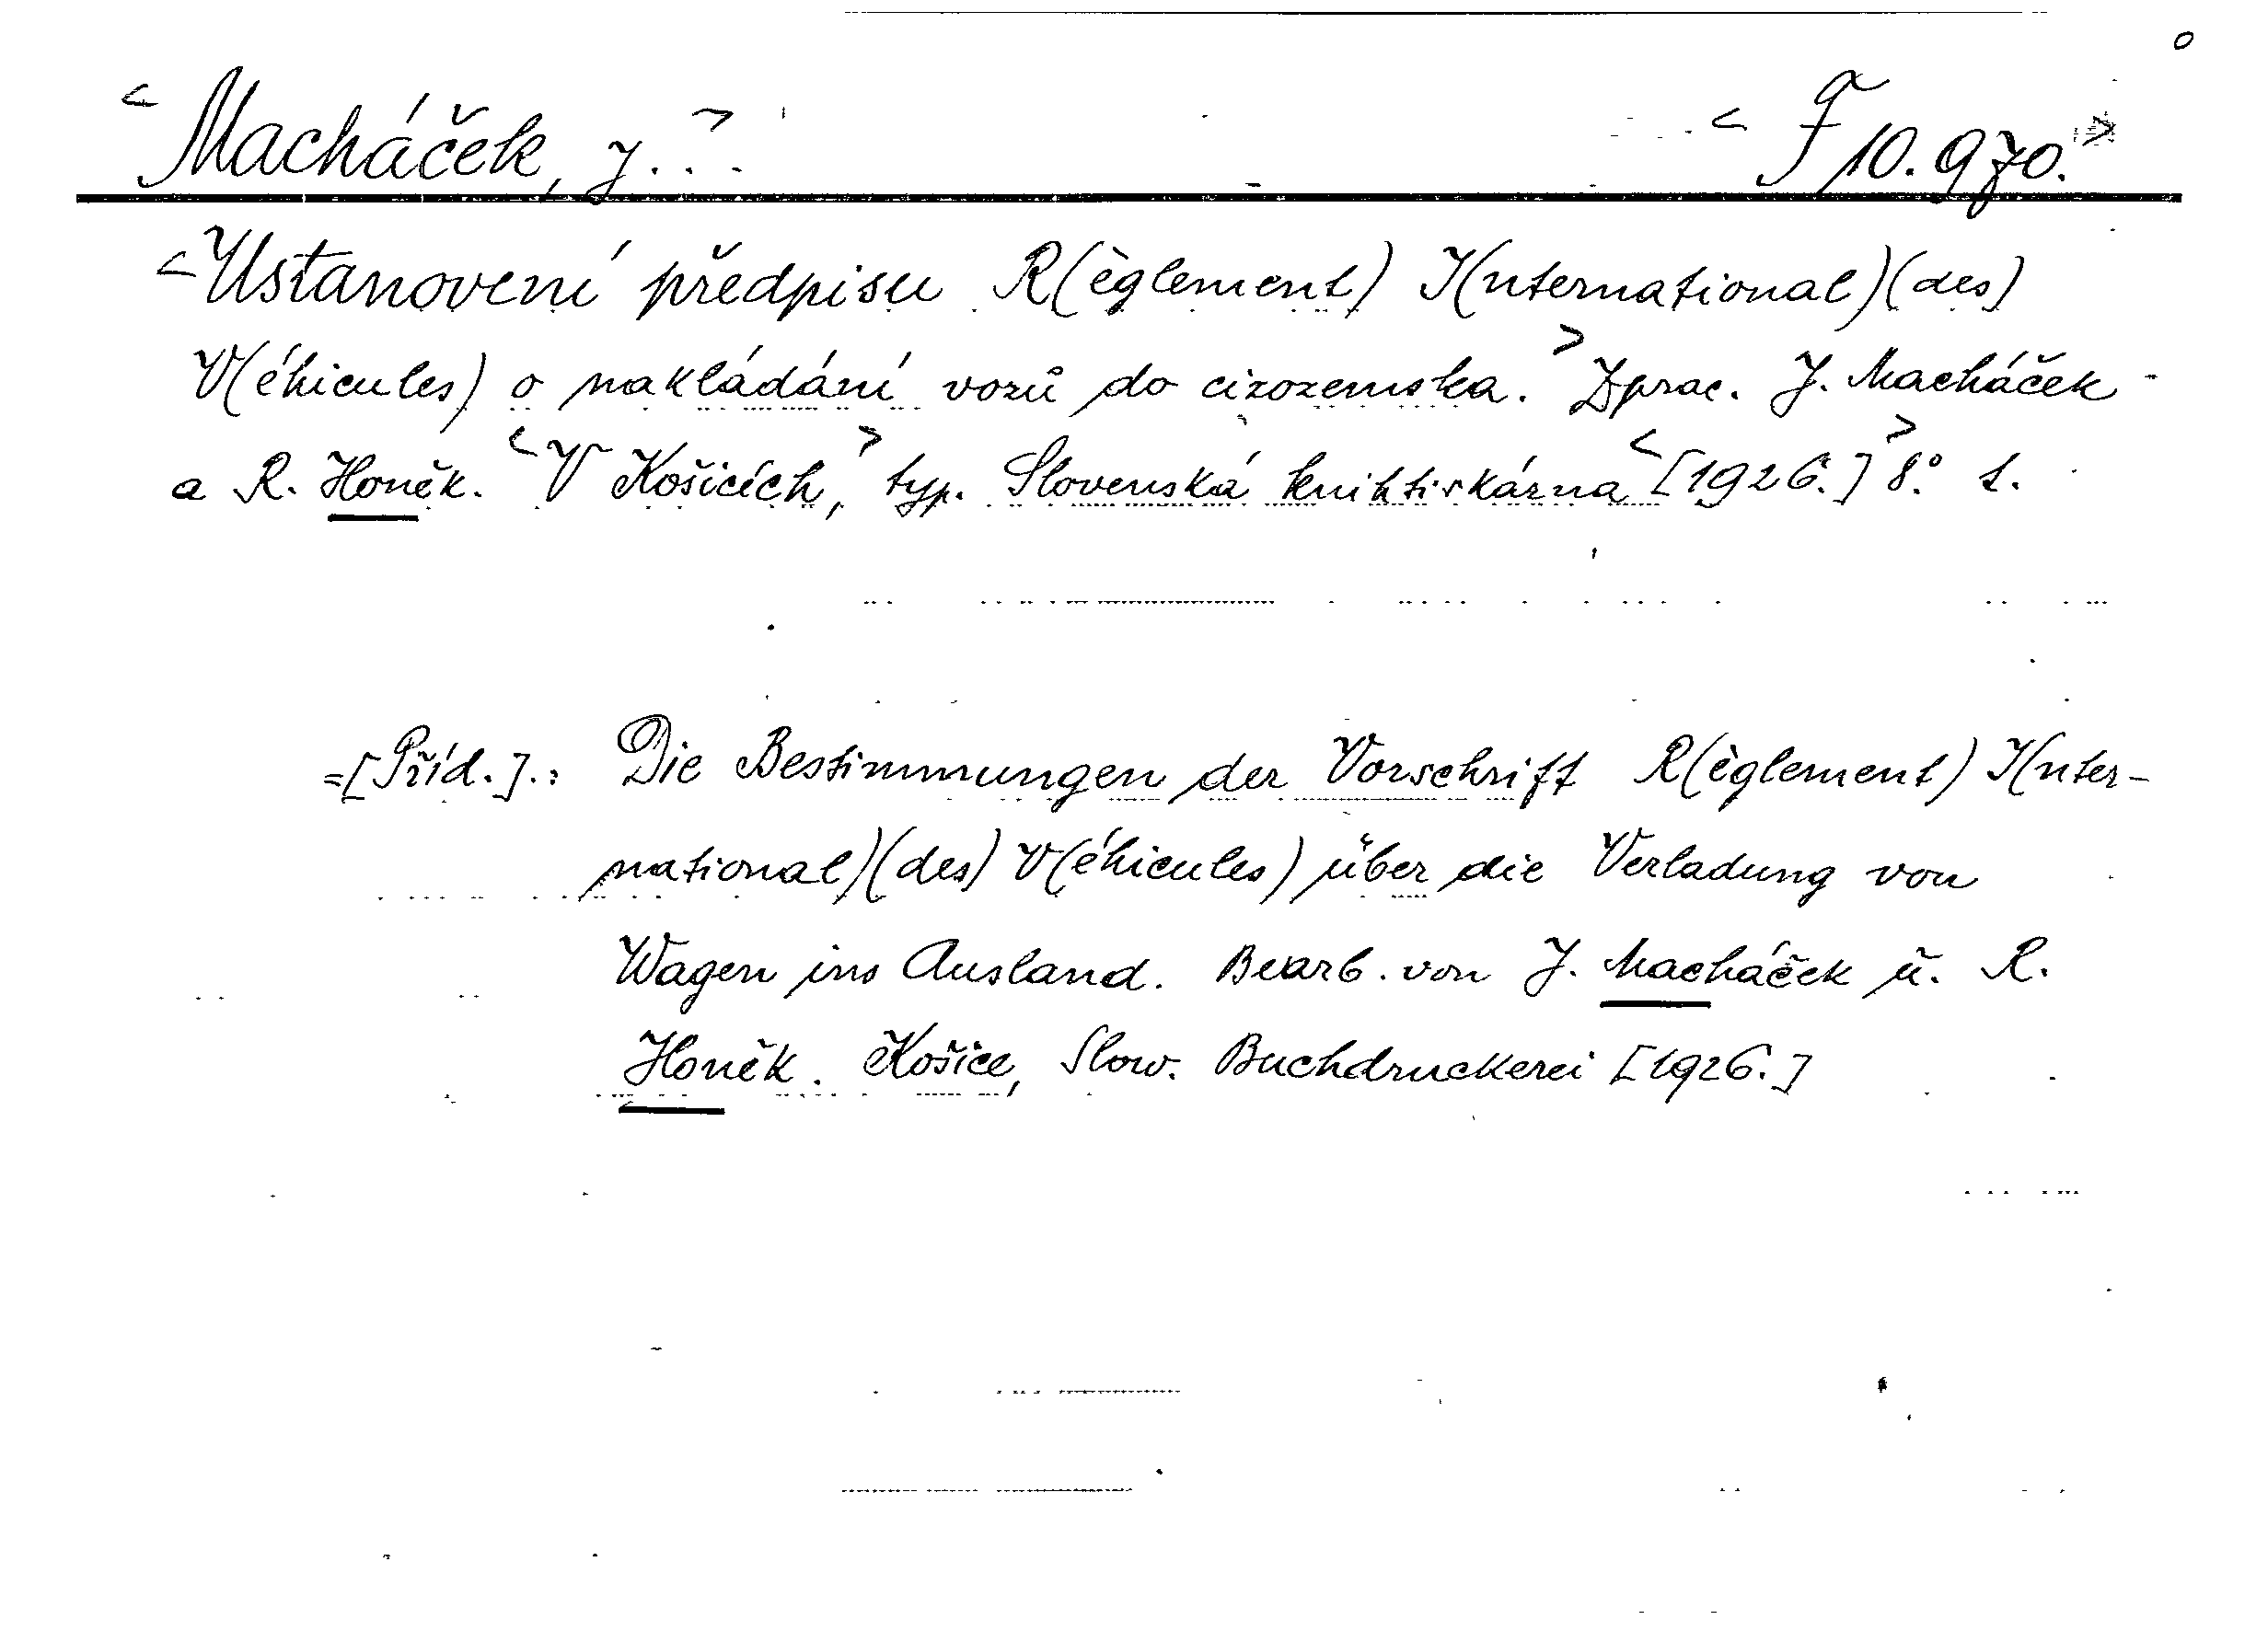 <Macháček, J...> <F 10.970.>
<Ustanovení předpisu R(èglement) I(nternational)(des)
V(éhicules) o nakládání vozů do cizozemska.> Zprac. J. Macháček
a R. Honěk. <V Košicích,> typ. Slovenská knihtiskárna <[1926.]> 8.° 1.
=[Příd.].: Die Bestimmungen der Vorschrift R(èglement) I(nter-
national)(des) V(éhicules) über die Verladung von
Wagen ins Ausland. Bearb. von J. Macháček u. R.
Honěk. Košice, Slow. Buchdruckerei [1926.]